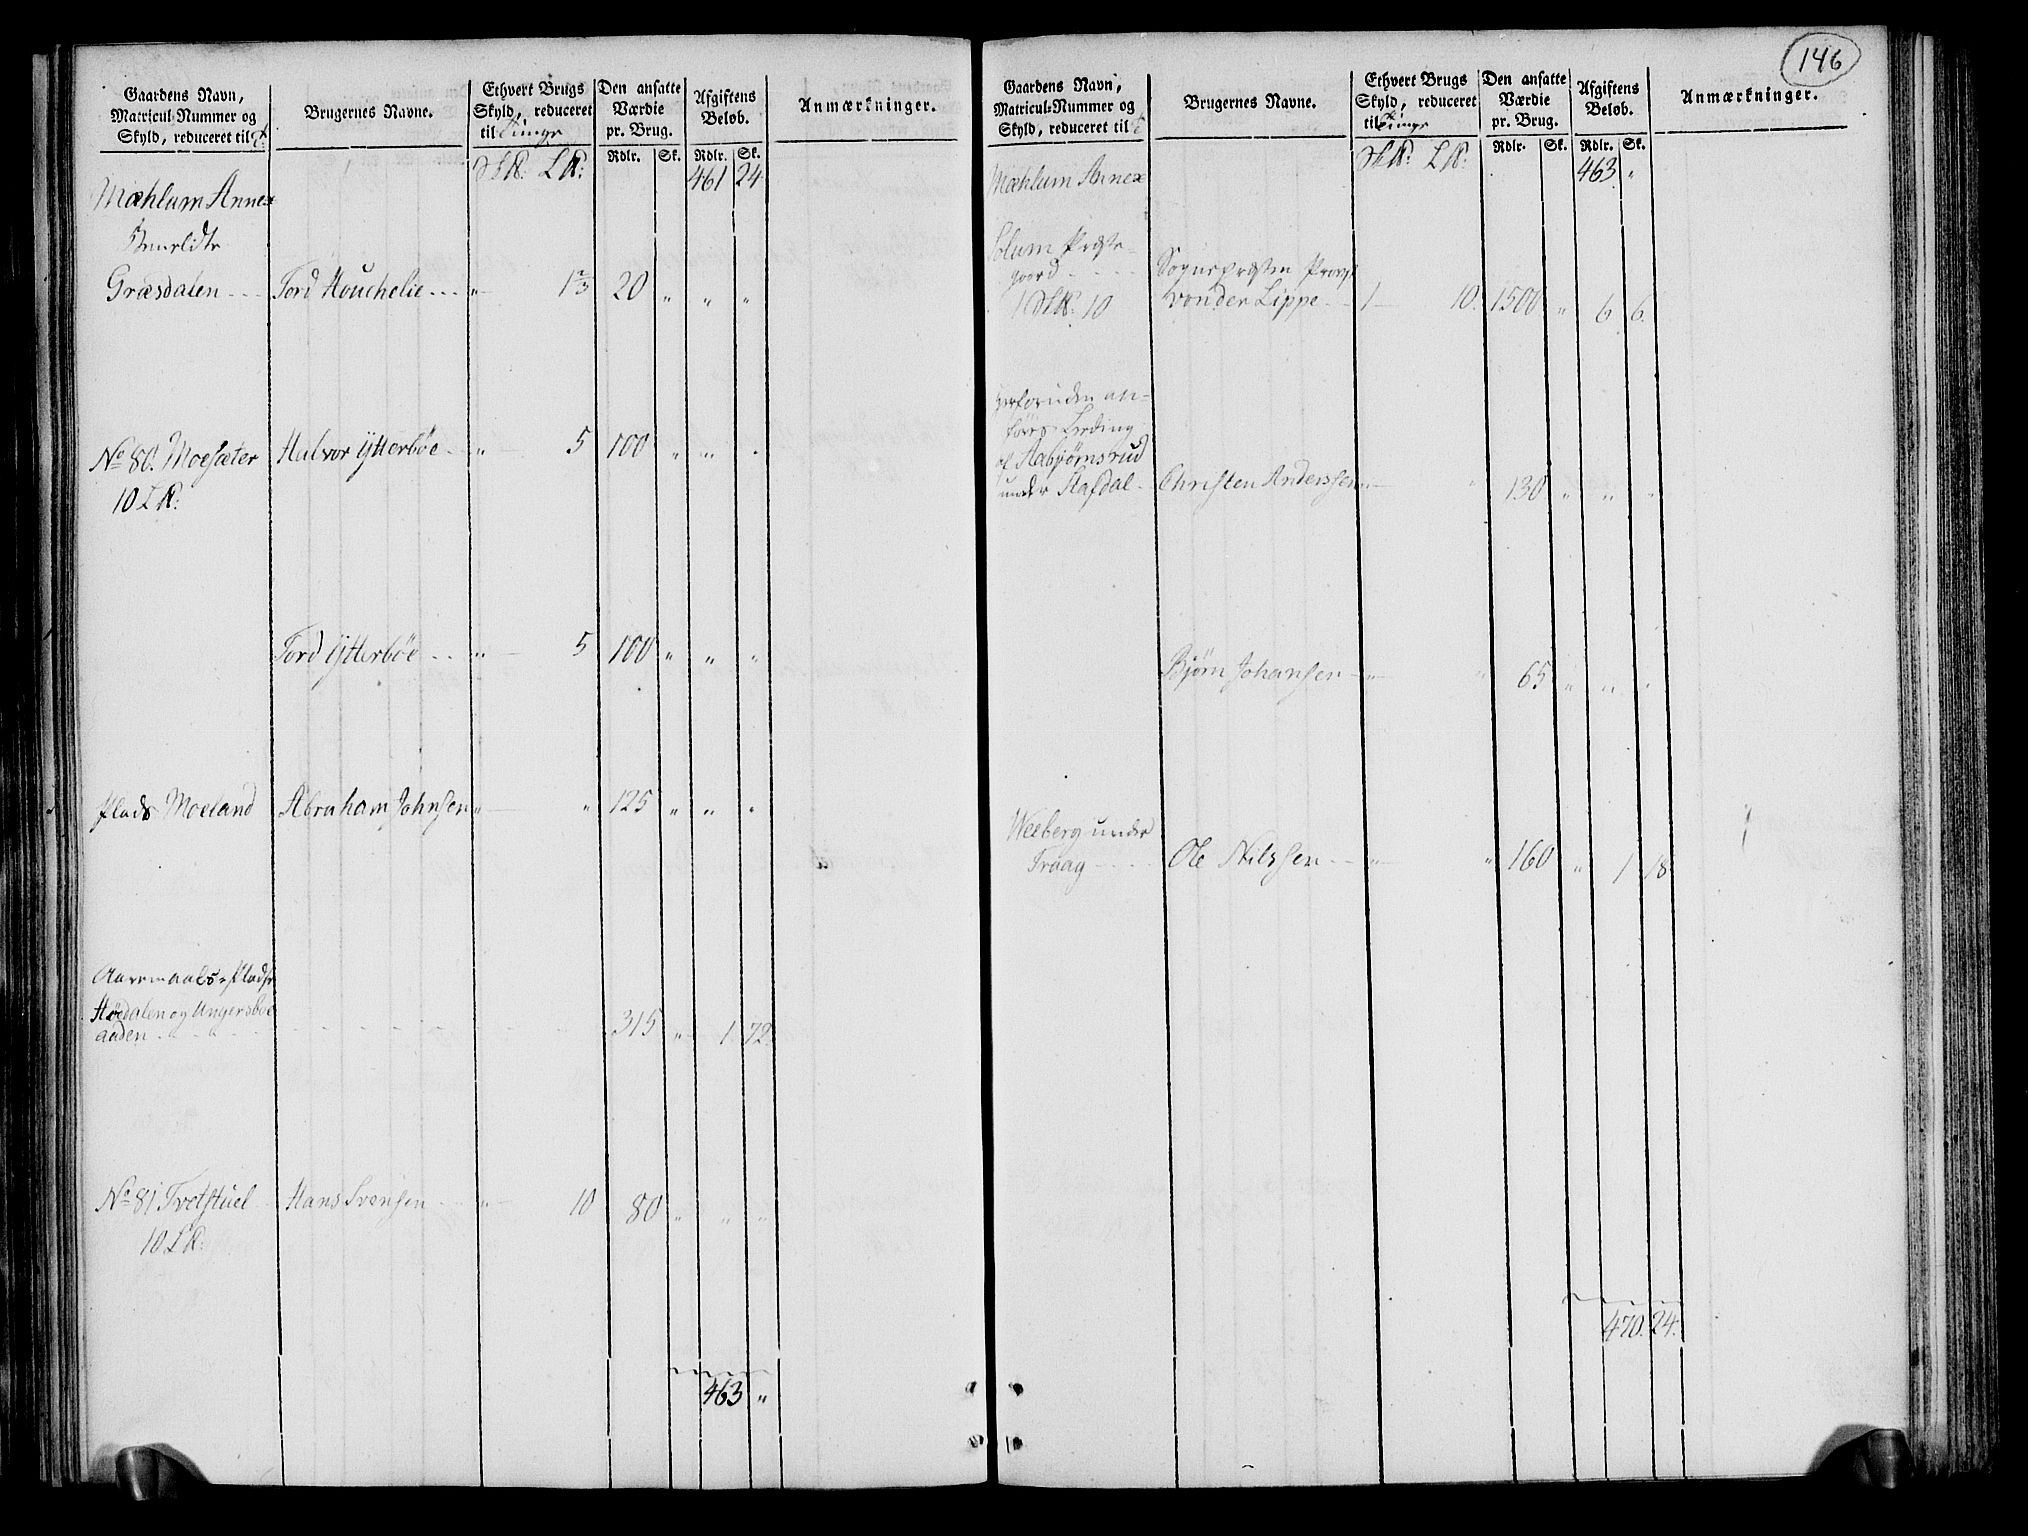 146
Gaardens Navn, Matricul-Nummer og Skyld, reduceret til
Brugernes Navne.
Ethvert Brugs Skyld, reduceret til Tunge
Den ansatte Værdie pr. Brug.
Afgiftens Beløb.
Anmærkninger.
Rdlr. Sk. Rdlr. Sk.
Mæhlum Annex 461 24
Græsdalen Tord Houchelie „ 1⅔ 20 „ „ „
No 80. Moesæter Halvor Ytterbøe „ 5 100 „ „ „
10 L℔:
Tord Ytterbøe „ 5 100 „ „ „
Plads Moeland Abraham Johnsen „ „ 125 „ „ „
Aaremaals-Pladse
Høedalen og Ungersboe
aaden 315 „ 1 72
No 81 Tvetstuel Hans Svensen „ 10 80 „ „ „
10 L℔:
463 „
Gaardens Navn, Matricul-Nummer og Skyld, reduceret til
Brugernes Navne.
Ethvert Brugs Skyld, reduceret til Tunge
Den ansatte Værdie pr. Brug.
Afgiftens Beløb.
Anmærkninger.
Rdlr. Sk. Rdlr. Sk.
Mæhlum Annex 463 „
Solum Præste-
gaard Sognepræsten Provst
1 S℔: 10 von der Lippe 1 10 1500 „ 6 6
af Aabjørnsrud
under Stafdal Christen Anderssen „ „ 130 „ „ „
Bjørn Johansen „ „ 65 „ „ „
Weeberg under
Traag Ole Nilssen „ „ 160 „ 1 18
470 24